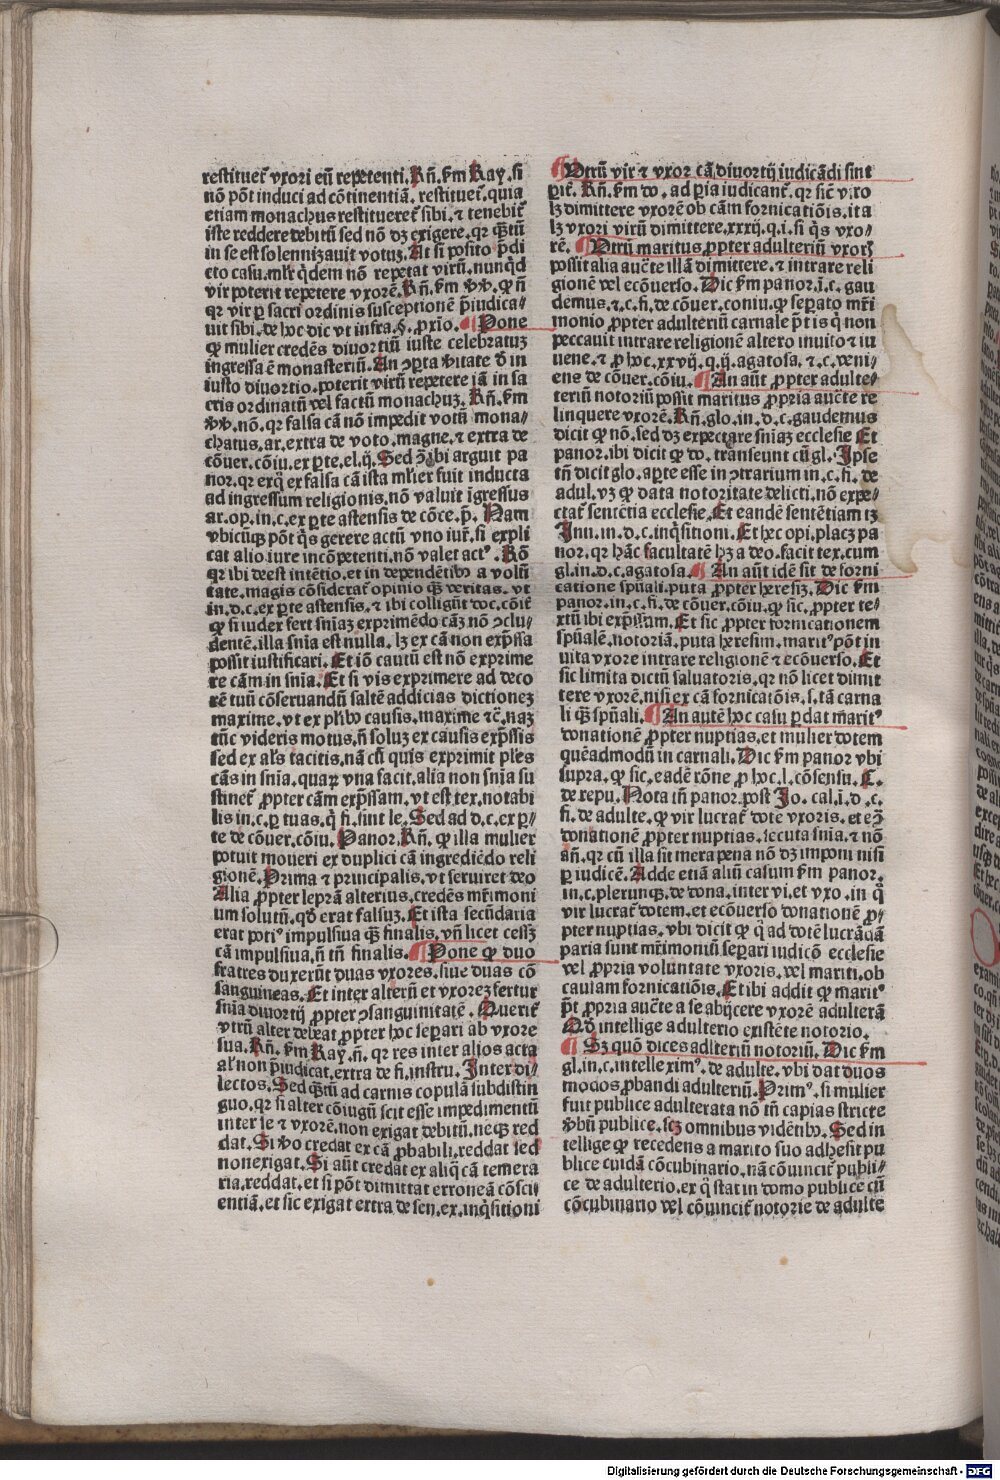 restituet᷑ vxori eũ repetenti. Rñ. ẜm Ray. si
nõ põt induci ad cõtinentiã. restituet᷑. quia
etiam monachus restitueret᷑ sibi. ⁊ tenebit᷑
iste reddere debitũ sed nõ dꝫ exigere. qꝛ qꝫtũ
in se est solennizauit votuꝫ. At si posito p̃di
cto casu. mlr̃ q̃dem nõ repetat virũ. nunqͥd
vir poterit repetere vxorẽ. Rñ. ẜm
qꝛ vir ꝑ sacri ordinis susceptionẽ p̃iudica⸗
uit sibi. de hoc dic vt infra. §. ꝓxĩo. ¶ Pone
ꝙ mulier credẽs diuortiũ iuste celebratuꝫ
ingressa ẽ monasteriũ. An ꝯꝑta ṽitate ꝺ̃ in
iusto diuortio. poterit virũ repetere iã in sa
cris ordinatũ vel factũ monachuꝫ. Rñ. ẜm
nõ. qꝛ falsa cã nõ impedit votũ mona⸗
chatus. ar. extra de voto. magne. ⁊ extra de
cõuer. cõiu. ex ꝑte. el. ij. Sed ꝯ̃ ibi arguit pa
nor. qꝛ exqͦ ex falsa cã ista ml̃ier fuit inducta
ad ingressum religionis. nõ valuit ĩgressus
ar. op. in. c. ex ꝑte astensis de cõce. p̃. Nam
vbicũqꝫ põt qͥs gerere actũ vno iur̃. si expli
cat alio iure incõpetenti. nõ valet actꝰ. Rõ
qꝛ ibi deest intẽtio. et in dependẽtibꝫ a volũ
tate. magis cõsiderat᷑ opinio qꝫ veritas. vt
in. d. c. ex ꝑte astensis. ⁊ ibi colligũt doc. cõit᷑
ꝙ si iudex fert sñiaꝫ exprimẽdo cãꝫ nõ ꝯclu⸗
dentẽ. illa sñia est nulla. lꝫ ex cã non exp̃ssa
possit iustificari. Et iõ cautũ est nõ exprime
re cãm in sñia. Et si vis exprimere ad deco
rẽ tuũ cõseruandũ saltẽ addicias dictionez
maxime. vt ex pl̃ibꝰ causis. maxime ⁊c̃. naꝫ
tũc videris motus. ñ soluꝫ ex causis exp̃ssis
sed ex al̃s tacitis. nã cũ quis exprimit pl̃es
cãs in sñia. quaꝝ vna facit. alia non sñia su
stinet᷑ ꝓpter cãm exp̃ssam. vt est tex. notabi
lis in. c. ꝑ tuas. qͥ fi. sint le. Sed ad. d. c. ex ꝑ⸗
te de cõuer. cõiu. Panor. Rñ. ꝙ illa mulier
potuit moueri ex duplici cã ingrediẽdo reli
gionẽ. Prima ⁊ principalis. vt seruiret deo
Alia ꝓpter leprã alterius. credẽs mr̃imoni
um solutũ. qd̃ erat falsuꝫ. Et ista secũdaria
erat potiꝰ impulsiua qꝫ finalis. vñ licet cesset
cã impulsiua. ñ tñ finalis. ¶ Pone ꝙ duo
fratres duxerũt duas vxores. siue duas cõ
sanguineas. Et inter alterũ et vxorez fertur
sñia diuortij ꝓpter ꝯsanguinitatẽ. Querit᷑
vtrũ alter debeat ꝓpter hoc seꝑari ab vxore
sua. Rñ. ẜm Ray. ñ. qꝛ res inter alios acta
al̃ non p̃iudicat. extra de fi. instru. Inter di⸗
lectos. Sed qꝫtũ ad carnis copulã subdistin
guo. qꝛ si alter cõiugũ scit esse impedimentũ
inter se ⁊ vxorẽ. non exigat debitũ. neqꝫ red
dat. Si ṽo credat ex cã ꝓbabili. reddat sed
non exigat. Si aũt credat ex aliqͣ cã temera
ria. reddat. et si põt dimittat erroneã cõsci⸗
entiã. et sic exigat extra de sen. ex. inqͥsitioni
¶ Vtrũ vir ⁊ vxor cã diuortij iudicãdi sint
ꝑit᷑. Rñ. ẜm do. ad ꝑia iudicant᷑. qꝛ sic᷑ viro
lꝫ dimittere vxorẽ ob cãm fornicatiõis. ita
lꝫ vxori virũ dimittere. xxxij. q. i. si qͥs vxo⸗
rẽ. ¶ Vtrũ maritus ꝓpter adulteriũ vxorꝭ
possit alia auct̃e illã dimittere. ⁊ intrare reli
gionẽ vel ecõuerso. Dic ẜm panor. ĩ. c. gau
demus. ⁊. c. fi. de cõuer. coniu. ꝙ seꝑato mr̃i
monio ꝓpter adulteriũ carnale p̃t is qͥ non
peccauit intrare religionẽ altero inuito ⁊ iu
uene. ⁊ ꝓ hoc. xxvij. q. ij. agatosa. ⁊. c. veni⸗
ens de cõuer. cõiu. ¶ An aũt ꝓpter adulte⸗
teriũ notoriũ possit maritus ꝓpria auct̃e re
linquere vxorẽ. Rñ. glo. in. d. c. gaudemus
dicit ꝙ nõ. sed dꝫ expectare sñiaꝫ ecclesie Et
panor. ibi dicit ꝙ do. trãnseunt cũ gl. Ipse
tñ dicit glo. aꝑte esse in ꝯtrarium in. c. fi. de
adul. vꝫ ꝙ data notoritate delicti. nõ expe⸗
ctat᷑ sentẽtia ecclesie. Et eandẽ sentẽtiam tꝫ
Inn. in. d. c. inqͥsitioni. Et hec opi. placꝫ pa
nor. qꝛ hãc facultatẽ hꝫ a deo. facit tex. cum
gl. in. d. c. agatosa. ¶ An aũt idẽ sit de forni
catione sp̃uali. puta ꝓpter heresiꝫ. Dic ẜm
panor. in. c. fi. de cõuer. cõiu. ꝙ sic. ꝓpter te⸗
xtũ ibi exp̃ssum. Et sic ꝓpter fornicationem
sp̃ualẽ. notoriã. puta heresim. maritꝰ põt in
uita vxore intrare religionẽ ⁊ ecõuerso. Et
sic limita dictũ saluatoris. qꝛ nõ licet dimit
tere vxorẽ. nisi ex cã fornicatõis. s. tã carna
li qꝫ sp̃uali. ¶ An autẽ hoc casu ꝑdat maritꝰ
donationẽ ꝓpter nuptias. et mulier dotem
quẽadmodũ in carnali. Dic ẜm panor vbi
supra. ꝙ sic. eadẽ rõne ꝓ hoc. l. cõsensu. C.
de repu. Nota tñ panor. post Jo. cal. ĩ. d. c.
fi. de adulte. ꝙ vir lucrat᷑ dotẽ vxoris. et eꝯ̃
donationẽ ꝓpter nuptias. secuta sñia. ⁊ nõ
añ. qꝛ cũ illa sit mera pena nõ dꝫ imponi nisi
ꝑ iudicẽ. Adde etiã aliũ casum ẜm panor.
in. c. plerunqꝫ. de dona. inter vi. et vxo. in qͦ
vir lucrat᷑ dotem. et ecõuerso donationẽ ꝓ⸗
pter nuptias. vbi dicit ꝙ qͦ ad dotẽ lucrãdã
paria sunt mr̃imoniũ seꝑari iudicõ ecclesie
vel ꝓpria voluntate vxoris. vel mariti. ob
causam fornicatiõis. Et ibi addit ꝙ maritꝰ
p̃t ꝓpria auct̃e a se abijcere vxorẽ adulterã
Qd̃ intellige adulterio existẽte notorio.
¶ Sꝫ quõ dices adlteriũ notoriũ. Dic ẜm
gl. in. c. intelleximꝰ. de adulte. vbi dat duos
modos ꝓbandi adulteriũ. Primꝰ. si mulier
fuit publice adulterata nõ tñ capias stricte
ṽbũ publice. scꝫ omnibus vidẽtibꝫ. Sed in
tellige ꝙ recedens a marito suo adhesit pu
blice cuidã cõcubinario. nã cõuincit᷑ publi⸗
ce de adulterio. ex qͦ stat in domo publice cũ
cõcubinario vel cõuincit᷑ notorie de adulte
Digitalisierung gefördert durch die Deutsche Forschungsgemeinschaft - DFG